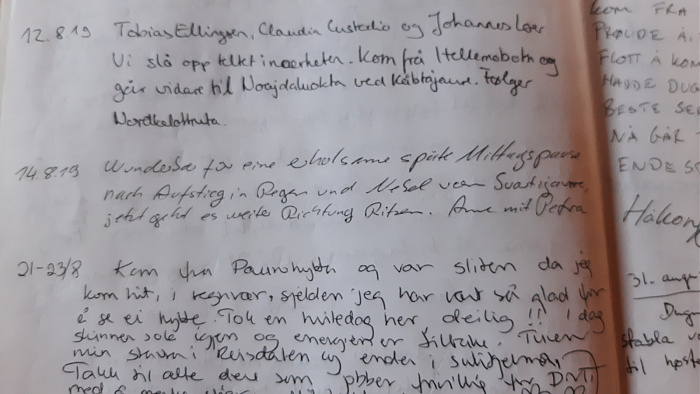 12.8.19 Tobias Ellingsen, Claudia Custodio og Johannes Loer
Vi slå opp telt i nærheten. Kom frå Hellemobotn og
går vidare til Noajdaluokta ved Kåbtåjaure. Følger
Nordkalottruta.
14.8.19 Wunderbar für eine erholsame späte Mittagspause
nach Aufstieg in Regen und Nebel vom
jetzt geht es weiter Richtung Ritsem. Anne mit Petra
21-23/8 Kom fra Paurohytta og var sliten da jeg
kom hit, i regnvær, sjelden jeg har vært så glad for
å se ei hytte. Tok en hviledag her deilig!! I dag
skinner sola igjen og energien er tilbake. Turen
min i Reisadalen og ender i Sulitjelma
Takk til alle dere som jobber frivillig for DNT,
med å
KOM FRA
PRØVDE Å
FLOTT Å KOM
HADDE DUG
BESTE SE
NÅ GÅR
ENDE S
Håkon
31. aug
Dug
stabla v
til høst